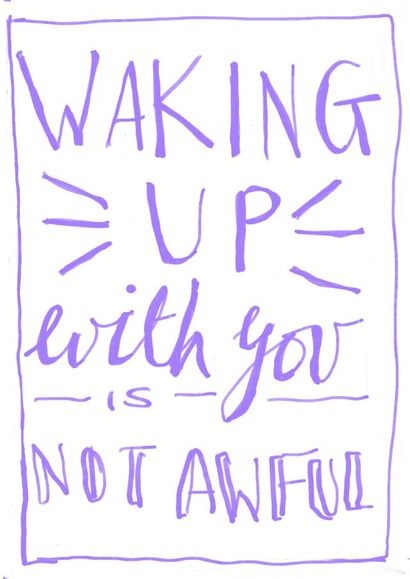 WAKING
UP
with you
IS
NOT AWFUL